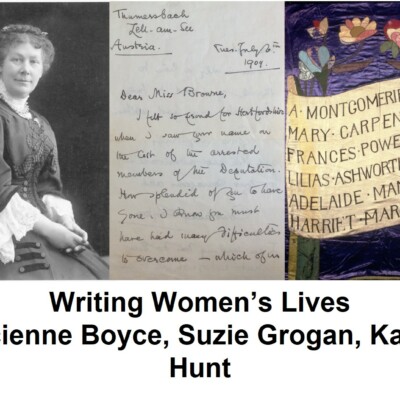 Thumersbach
Zell-am-See
Austria.
Tues. July 6th
1909.
Dear Miss Browne,
I felt so proud for Hertfordshire
when I saw your name in
the list of the arrested
members of the Deputation.
How splendid of you to have
gone. I know you must
have had many difficulties
to overcome – which of us
A·MONTGOMERIE
MARY·CARPEN
FRANCES·POWE
LILIAS·ASHWORTH
ADELAIDE·MAN
HARRIET·MAR
Writing Women's Lives
cienne Boyce, Suzie Grogan, Ka
Hunt